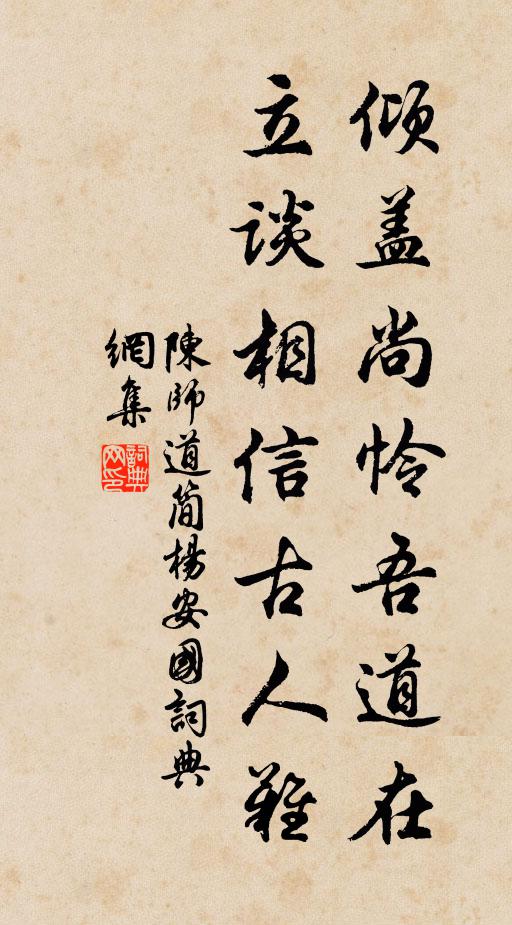 倾盖尚怜吾道在
立谈相信古人難
陳師道简楊安國詞典
網集
詞典网印